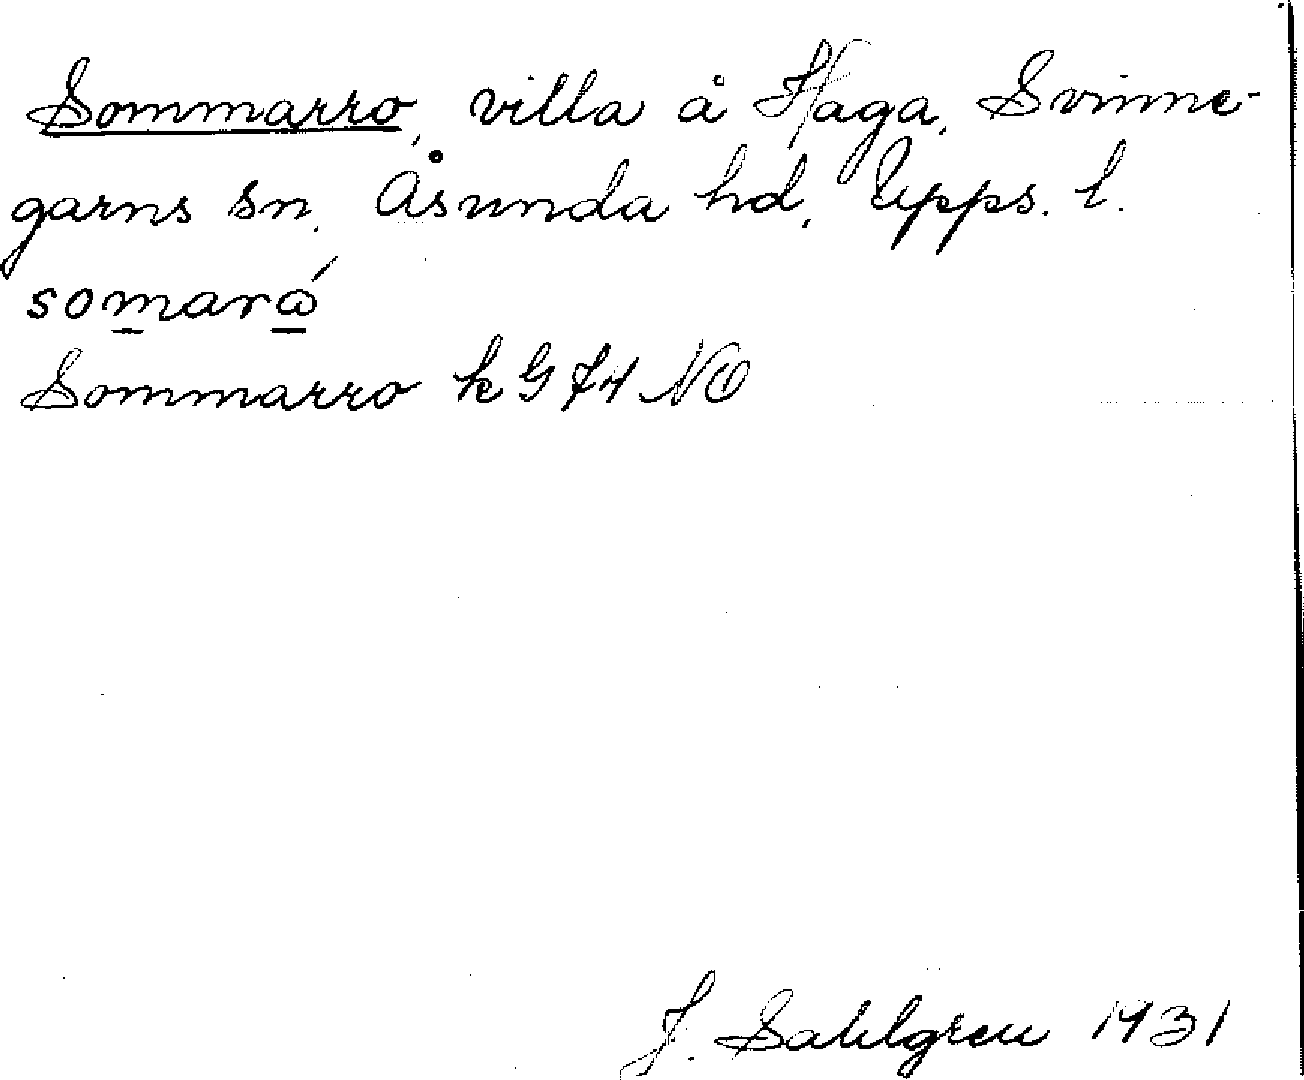 Sommarro, villa å Haga, Svinne-
garns sn, Åsunda hd, Upps. l.
somarώ
Sommarro k G 74 NO
J. Sahlgren 1931